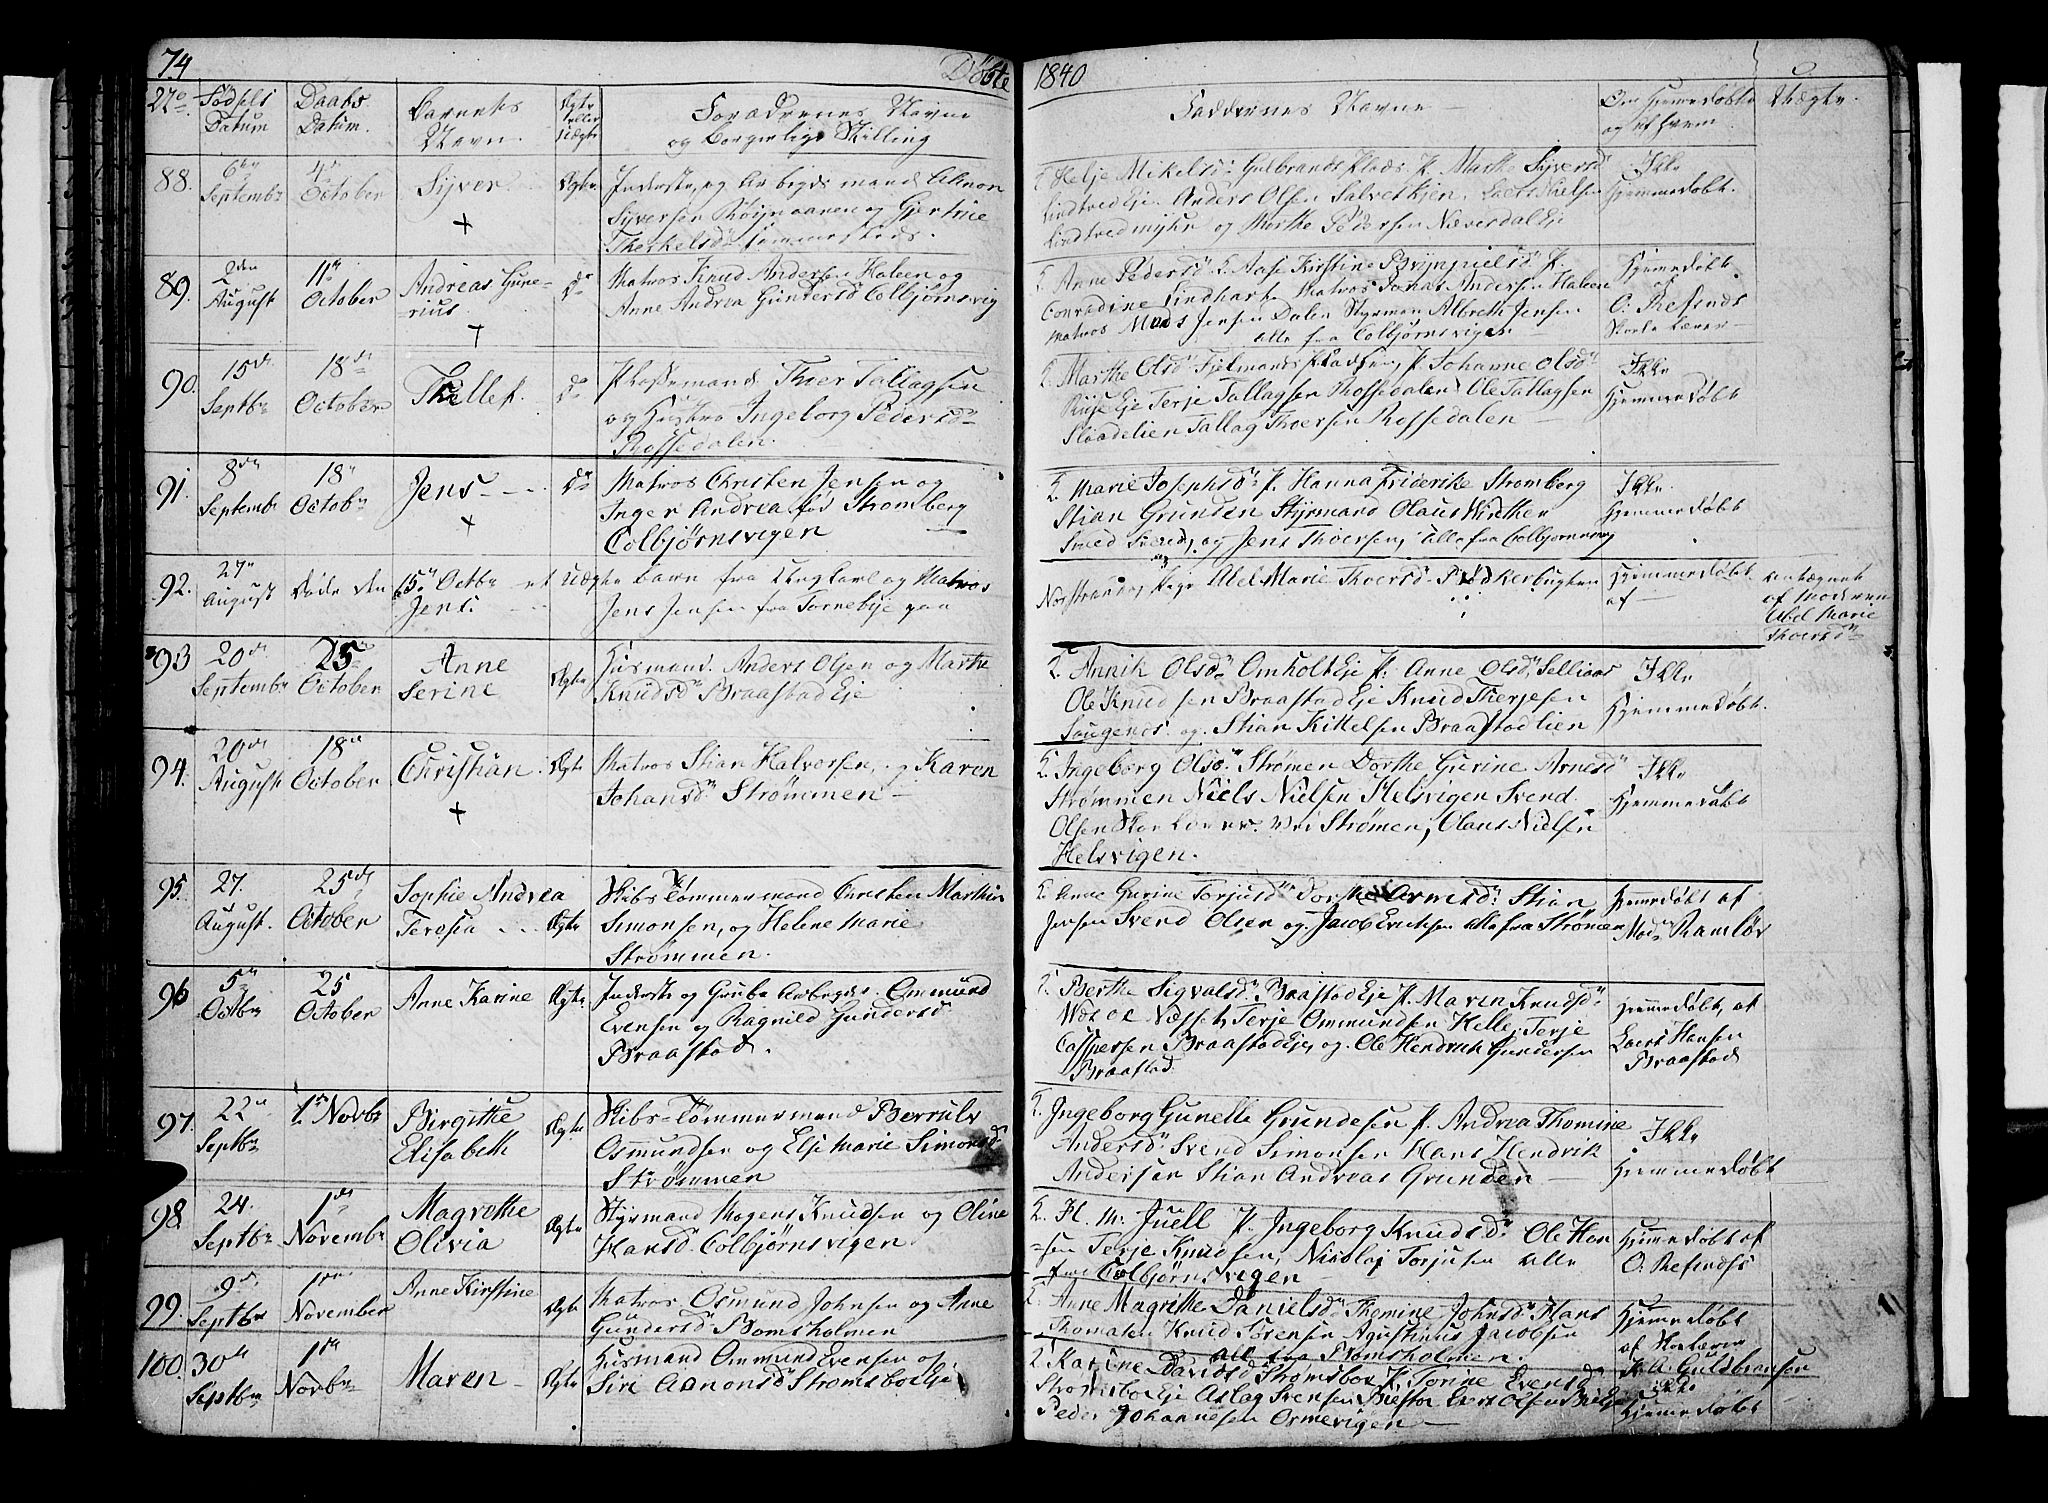 74 Döbte 1840
No. Födsels Datum Daabs Datum. Barnets Navn. Ægte eller Uægte Forældrenes Navne og borgerlige Stilling
Faddernes Navne — Om Hjemmedöbte og af hvem Uægte.
88. 6te Septembr 4de October Sÿver Ægte Inderste, og Arbeyds mand Aanon
Sÿversen Röÿnaaren og Gjertrue
Therkelsdr
+
Helje Mikelsdr Gulbrands Plads P. Marthe Sÿversdr
Lindtved Eje. Anders Olsen Salvetkjen. Laers Nielsen
Lindtvedmÿhr og Morthe Pedersen Næverdal Eje
Ikke Hjemmedöbt.
89. 2den August 11te October Andreas Gunerius. do Matros Knud Andersen Holeen og
Anne Andrea Gundersdr Colbjørnsvig
+
Anne Pedersdr Aase Kirstine Brÿnnielsdr P.
Conradine Lindhart Matros Tomas Andersen Holeen
Matros Mads Jensen Dalen Styrman Albreth Jensen
alle fra Colbjørnsvigen —
Hjemmedöbt af O. Refsnds Skole Lærer —
90. 15de Septbr 18de October Thellef. do Pladsemand Thor Tallagsen
og Hustru Ingeborg Pedersdr
Rossedalen.
Marthe Olsdr Fjelmands Pladsen, P. Johanne Olsdr
Riise Eje Terje Tallagsen Rossedalen Ole Tallagsen
Slaadelien Tallag Thoersen Rossedalen —
Ikke Hjemmedöbt
91. 8de Septembr 18de Octobr Jens — do Matros Christen Jensen og
Inger Andrea föd Stromberg
Colbjørnsvigen
+
Marie Josephsdr P. Hanna Friderike Stromberg
Stian Grunden Stÿrmand Olaus Winther
Sved Svends, og Jens Thoersen, alle fra Colbjørnsvig
Ikke Hjemmedöbt
92. 27de August Döde den 15de Octbr et Uægte barn fra Ungkarl og Matros
Jens: Jens Jensen fra Tornebÿe paa
Norstranno og Pige Abel Marie Thoersdr Rödkerbugten
Hjemmedöbt af — af Moderen Abel Marie Thoersdr
93 20de Septembr 25de October Anne Serine Ægte Husmand. Anders Olsen og Marthe
Knudsdr Braastad Eje
Annik Olsdr Omholt Eje P. Anne Olsdr Selliaas
Ole Knudsen Braastad Eje Knud Therjesen
Longenes og Stian Kittelsen Braastadlien
Ikke Hjemmedöbt.
94. 20de August 18de October Christian. Ægte Matros Stian Halvorsen, og Karen
Johansdr Strömmen —
+
Ingeborg Olsdr Strömen Dorthe Gurine Arnesdr
Strömmen Niels Nielsen Helsvigen Svend
Olsen Skoe Lærer ved Strömen, Olaus Nielsen
Helsvigen.
Ikke Hjemmedöbt
95. 27. August. 25de October Sophie Andrea Teresia Ægte Skibs Tömmermand Christen Marthin
Simonsen, og Helene Marie
Strömmen.
Anne Gurine Torjusdr Dorthe Ormsdr Stian
Jensen Svend Olsen og Jacob Ericksen alle fra Strömen
Hjemmedöbt af Mad. Ramlöv
96 5te Octbr 25 October Anne Karine Ægte Inderste og Grube Arbeyder. Ommund
Evensen og Ragnild Gundersdr
Braastad.
Berthe Sigvalsdr Braastad Eje P. Maren Knudsdr
Næsset, Terje Ommundsen Helle, Terje
Caspersen Braastad Eje, og Ole Hendrik Gundersen
Braastad
Hjemmedöbt, af Laers Hansen Braastad
97. 22de Septbr 1ste Novbr Birgithe Elisabeth Ægte Skibs-Tömmermand Berruls
Osmundsen og Else Marie Simonsdr
Strömmen
Ingeborg Gunelle Grundesen P. Andrea Thomine
Andersdr Svend Simonsen Hans Hendrik
Andersen Stian Andreas Grunden —
Ikke Hjemmedöbt
98. 24. Septbr 1ste Novembr Magrethe Olivia Ægte Stÿrmand Mogens Knudsen og Oline
Hansdr Colbjørnsvigen
H. M. Juell P. Ingeborg Knudsdr Ole Han
sen Terje Knudsen, Nicolaj Torjusen alle
fra Colbjørnsvigen
Hjemmedöbt af O. Refsnds
99. 9de Septbr 1ste November Anne Kirstine Ægte Matros Osmund Johnsen og Anne
Gundersdr Bomsholmen
Anne Magrethe Danielsdr Themine Johnsdr Hans
Thomasen Knud Sörensen Agustinus Jacobsen
alle fra Bomsholmen.
Hjemmedöbt af A. Guldbransen
100. 30te Septbr 1ste Novbr Maren — Ægte Husmand Ommund Evensen og
Siri Aanonsdr Strömsboe Eje
Karine Davidsdr Strömsboe P. Torine Evensdr
Strömsboe Eje Aslag Svensen Biestøe Evert Olsen
Peder Johannesen Osmevigen —
Ikke Hjemmedöbt